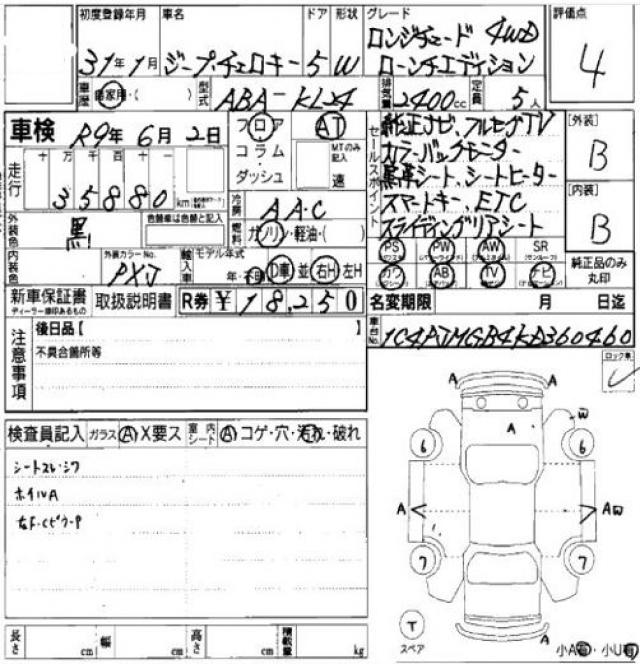 初度登録年月 車名 ドア 形状 グレード 評価点
31年1月 ジープ・チェロキー 5 W ロンジチュード 4WD
ローンチエディション
4
車歴 自家用・( ) 型式 ABA-KL24 排気量 2400cc 定員 5人
車検 R9年6月2日
フロア AT
コラム MTのみ記入
ダッシュ 速
セールスポイント
純正ナビ、フルセグTV
カラーバックモニター
黒革シート、シートヒーター
スマートキー、ETC
スライディングリアシート
[外装]
B
[内装]
B
走行 十 万 千 百 十 一
35880 km
冷房 AAC
外装色 黒 色替車は色替と記入
燃料 ガソリン・軽油・( )
内装色 外装カラーNo. PXJ
輸入車 モデル年式 年・不明 D車 並 右H 左H
PS PW AW SR
カワ AB TV ナビ
純正品のみ丸印
新車保証書 取扱説明書 R券 ¥18,250
名変期限 月 日迄
車台No. 1C4PJMGB4KD360460
注意事項
後日品【 】
不具合箇所等
検査員記入 ガラス A X要ス 室内シート A コゲ・穴・汚れ・破れ
シートスレ・シワ
ホイルA
A A
A W
6 6
A A W
7 7
T
スペア
A
小A・小U
長さ cm 幅 cm 高さ cm 積載量 kg